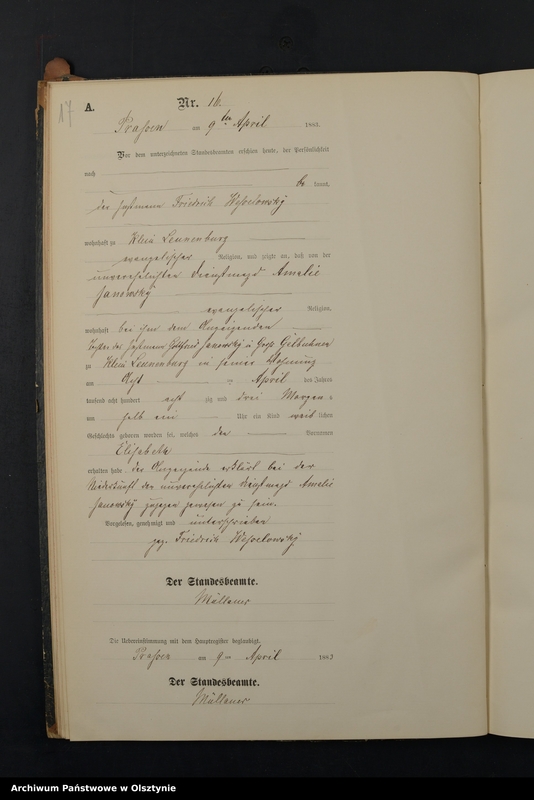 17
A.
Nr. 16.
Prassen am 9ten April 1883.
Vor dem unterzeichneten Standesbeamten erschien heute, der Persönlichkeit
nach
be kannt,
der Hofmann Friedrich Wysselowsky
wohnhaft zu Klein Leunenburg
evangelischer Religion, und zeigte an, daß von der
unverehelichten Dienstmagd Amelie
Janowsky
evangelischer Religion,
wohnhaft bei ihm dem Anzeigenden
Tochter des Hofmann Gottfried Janowsky u Horst
zu Klein Leunenburg in seiner Wohnung
am Acht April des Jahres
tausend acht hundert acht zig und drei Morgens
um halb ein Uhr ein Kind weib lichen
Geschlechts geboren worden sei, welches den Vornamen
Elisabeth
erhalten habe der Anzeigende erklärt bei der
Niederkunft der unverehelichten Dienstmagd Amelie
Janowsky zugegen gewesen zu sein.
Vorgelesen, genehmigt und unterschrieben
gez. Friedrich Wysselowsky
Der Standesbeamte.
Müllauer
Die Uebereinstimmung mit dem Hauptregister beglaubigt.
Prassen am 9ten April 1883
Der Standesbeamte.
Müllauer
Archiwum Państwowe w Olsztynie